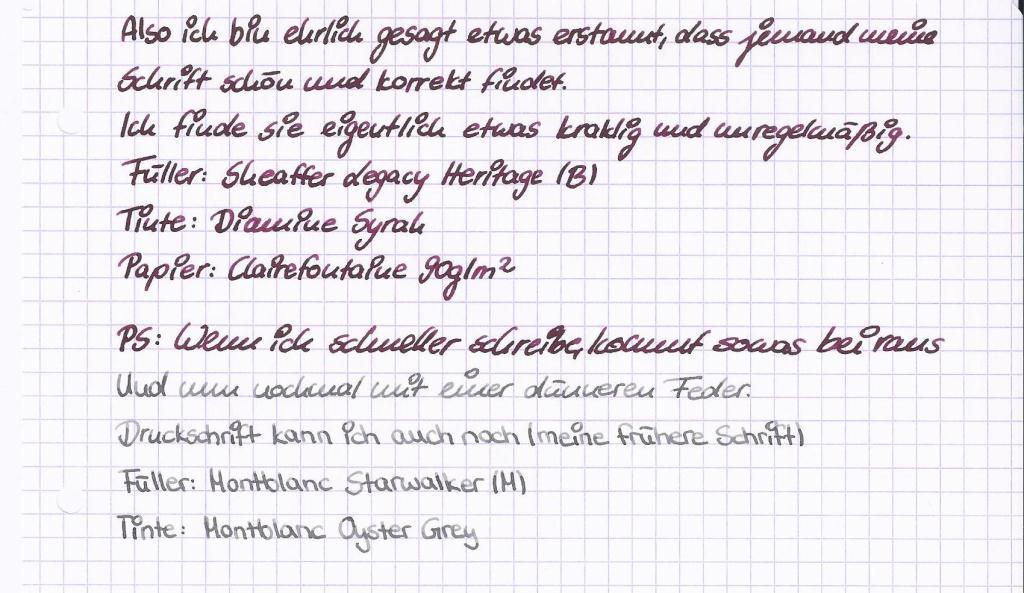 Also ich bin ehrlich gesagt etwas erstaunt, dass jemand meine
Schrift schön und korrekt findet.
Ich finde sie eigentlich etwas kraklig und unregelmäßig.
Füller: Sheaffer Legacy Heritage (B)
Tinte: Diamine Syrah
Papier: Clairefontaine 90g/m²
PS: Wenn ich schneller schreibe, kommt sowas bei raus
Und nun nochmal mit einer dünneren Feder.
Druckschrift kann ich auch noch (meine frühere Schrift)
Füller: Montblanc Starwalker (M)
Tinte: Montblanc Oyster Grey